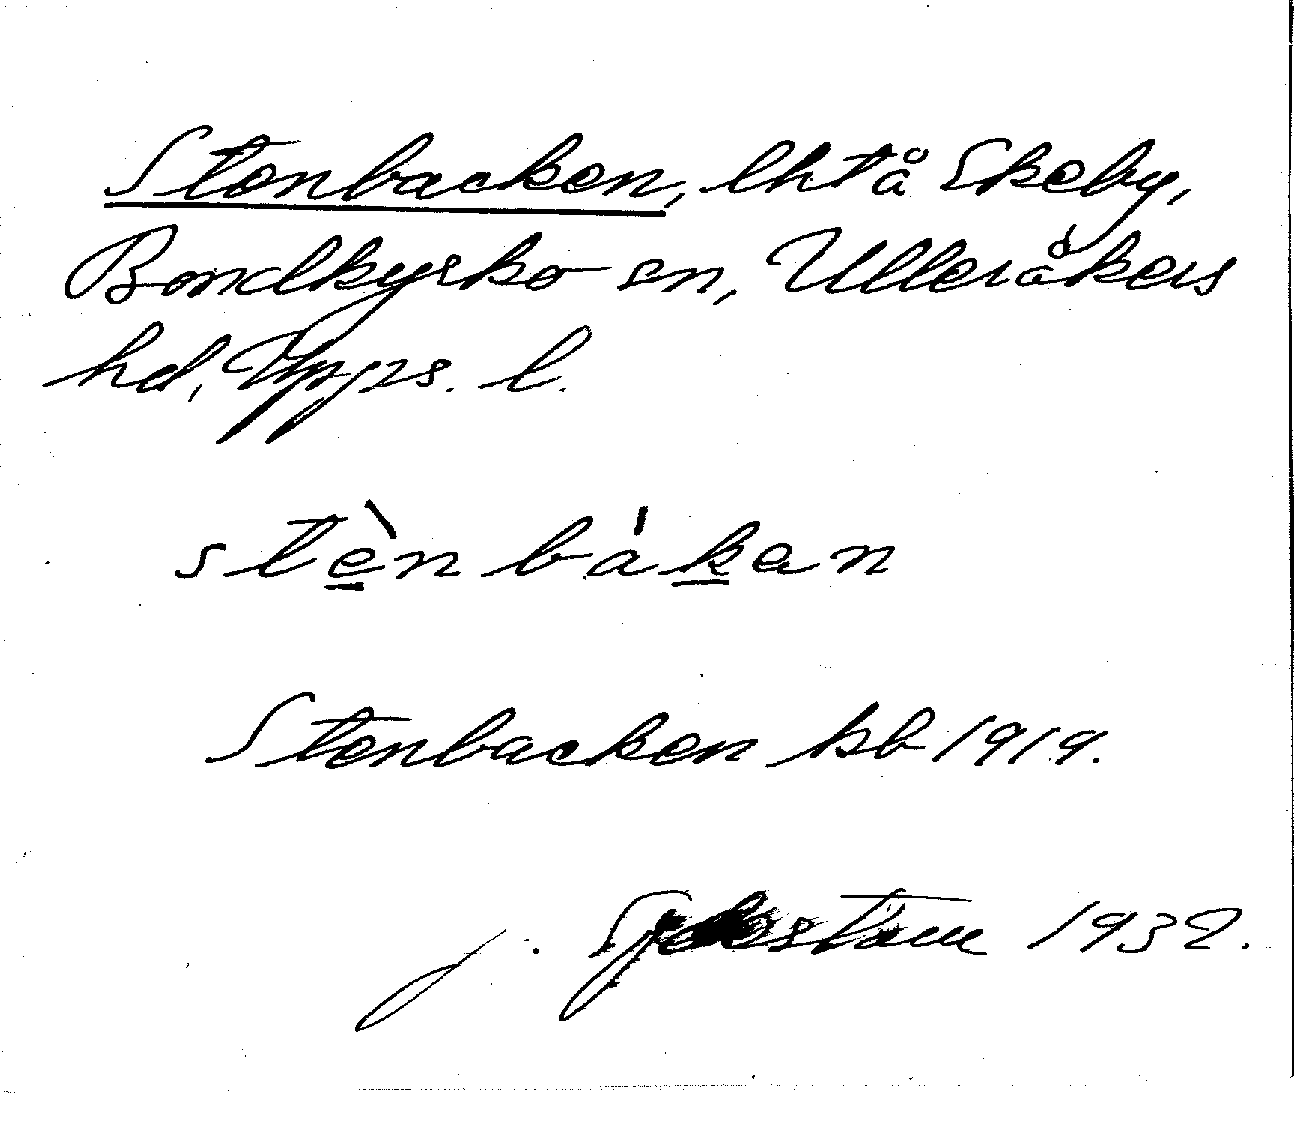 Stenbacken, lht å Skeby,
Bondkyrko sn, Ulleråkers
hd, Upps. l.
stèn bákan
Stenbacken kb 1919.
J. 1932.